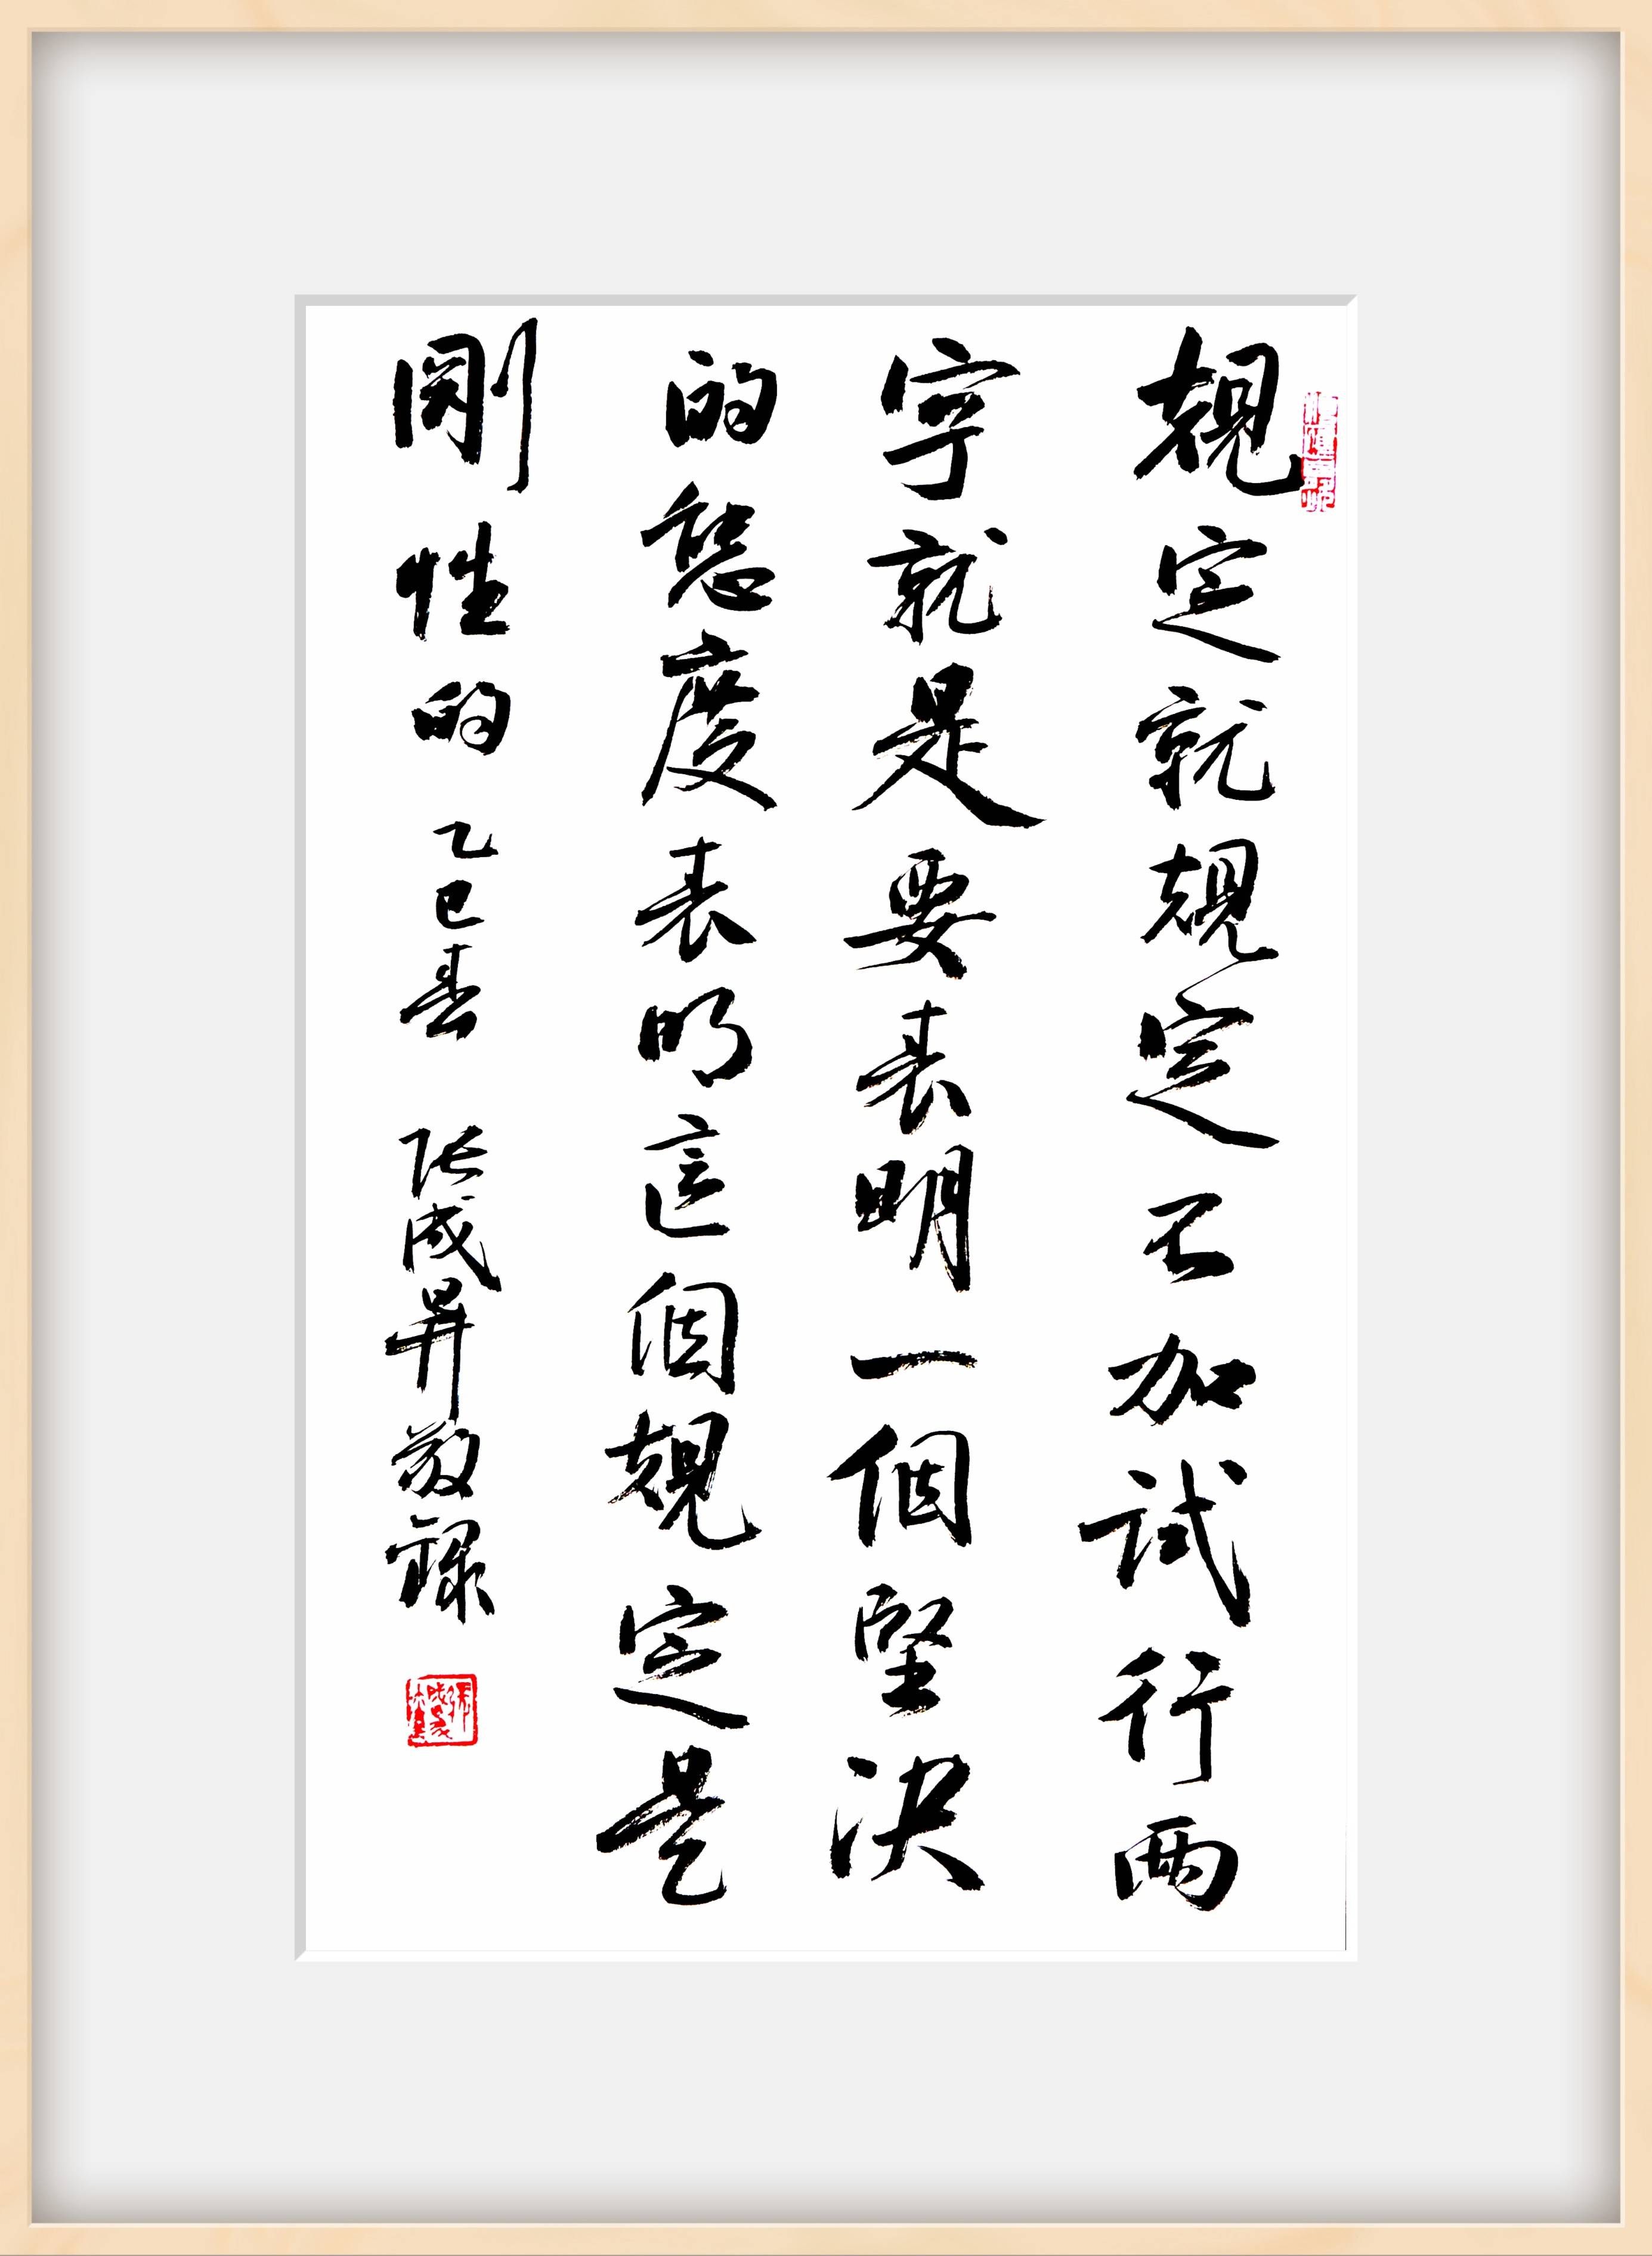 規定就規定不加試行兩
字就是要表明一個堅決
的態度表明這個規定是
剛性的 乙巳春 張成昇敬録